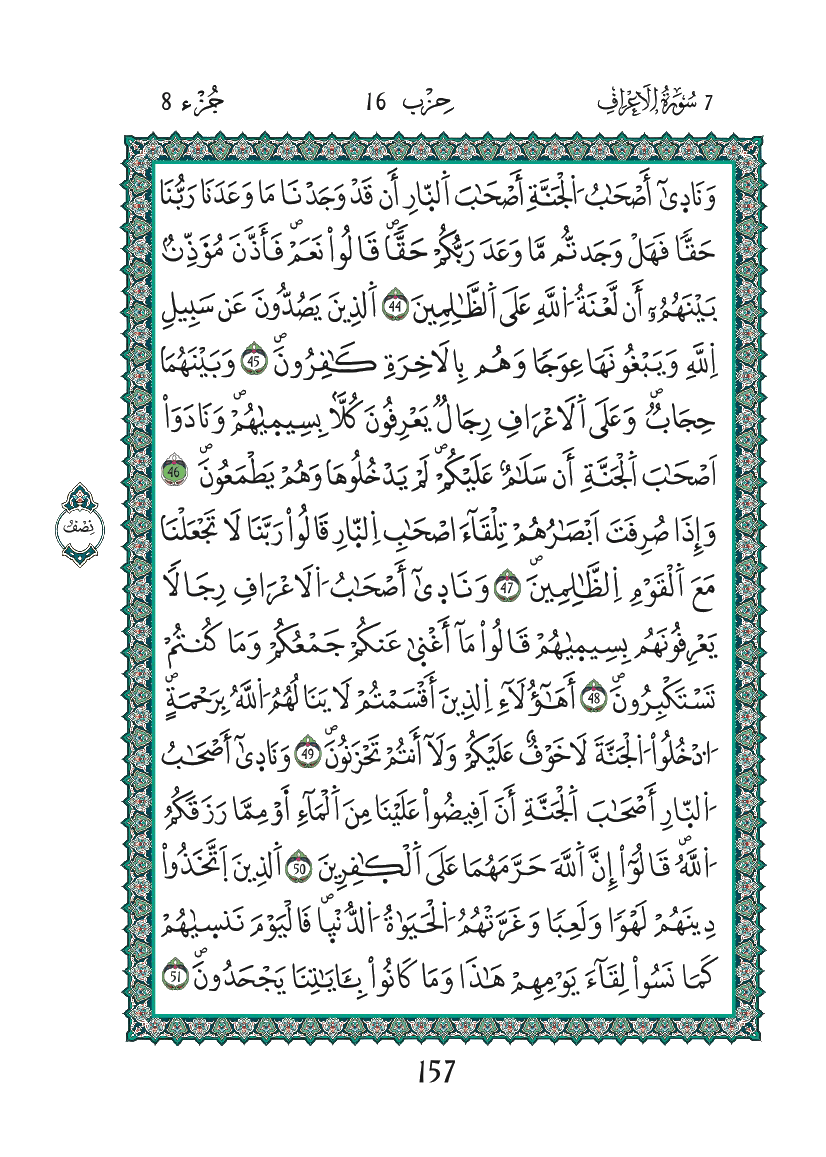 7 سُورَةُ اُ۬لَاعْرَافِ
حِزْب 16
جُزْء 8
وَنَادِىٰٓ أَصْحَٰبُ اُ۬لْجَنَّةِ أَصْحَٰبَ اَ۬لنّ۪ارِ أَن قَدْ وَجَدْنَا مَا وَعَدَنَا رَبُّنَا
حَقّاٗ فَهَلْ وَجَدتُّم مَّا وَعَدَ رَبُّكُمْ حَقّاٗۖ قَالُواْ نَعَمْۖ فَأَذَّنَ مُوَ۬ذِّنُۢ
بَيْنَهُمُۥٓ أَن لَّعْنَةُ اُ۬للَّهِ عَلَى اَ۬لظَّٰلِمِينَ 44 اَ۬لذِينَ يَصُدُّونَ عَن سَبِيلِ
اِ۬للَّهِ وَيَبْغُونَهَا عِوَجاٗ وَهُم بِالَاخِرَةِ كَٰفِرُونَۖ 45 وَبَيْنَهُمَا
حِجَابٞۖ وَعَلَى اَ۬لَاعْرَافِ رِجَالٞ يَعْرِفُونَ كُلّاَۢ بِسِيم۪ىٰهُمْۖ وَنَادَوَاْ
اَصْحَٰبَ اَ۬لْجَنَّةِ أَن سَلَٰمٌ عَلَيْكُمْۖ لَمْ يَدْخُلُوهَا وَهُمْ يَطْمَعُونَۖ 46
وَإِذَا صُرِفَتَ اَبْصَٰرُهُمْ تِلْقَآءَ اصْحَٰبِ اِ۬لنّ۪ارِ قَالُواْ رَبَّنَا لَا تَجْعَلْنَا
مَعَ اَ۬لْقَوْمِ اِ۬لظَّٰلِمِينَۖ 47 وَنَادِىٰٓ أَصْحَٰبُ اُ۬لَاعْرَافِ رِجَالاٗ
يَعْرِفُونَهُم بِسِيم۪ىٰهُمْ قَالُواْ مَآ أَغْن۪ىٰ عَنكُمْ جَمْعُكُمْ وَمَا كُنتُمْ
تَسْتَكْبِرُونَۖ 48 أَهَٰٓؤُلَآءِ اِ۬لذِينَ أَقْسَمْتُمْ لَا يَنَالُهُمُ اُ۬للَّهُ بِرَحْمَةٍۖ
اُ۟دْخُلُواْ اُ۬لْجَنَّةَ لَا خَوْفٌ عَلَيْكُمْ وَلَآ أَنتُمْ تَحْزَنُونَۖ 49 وَنَادِىٰٓ أَصْحَٰبُ
اُ۬لنّ۪ارِ أَصْحَٰبَ اَ۬لْجَنَّةِ أَنَ اَفِيضُواْ عَلَيْنَا مِنَ اَ۬لْمَآءِ اَوْ مِمَّا رَزَقَكُمُ
اُ۬للَّهُۖ قَالُوٓاْ إِنَّ اَ۬للَّهَ حَرَّمَهُمَا عَلَى اَ۬لْكٰ۪فِرِينَ 50 اَ۬لذِينَ اَ۪تَّخَذُواْ
دِينَهُمْ لَهْواٗ وَلَعِباٗ وَغَرَّتْهُمُ اُ۬لْحَيَوٰةُ اُ۬لدُّنْي۪اۖ فَالْيَوْمَ نَنس۪ىٰهُمْ
كَمَا نَسُواْ لِقَآءَ يَوْمِهِمْ هَٰذَا وَمَا كَانُواْ بِـَٔايَٰتِنَا يَجْحَدُونَۖ 51
نِصْف
157